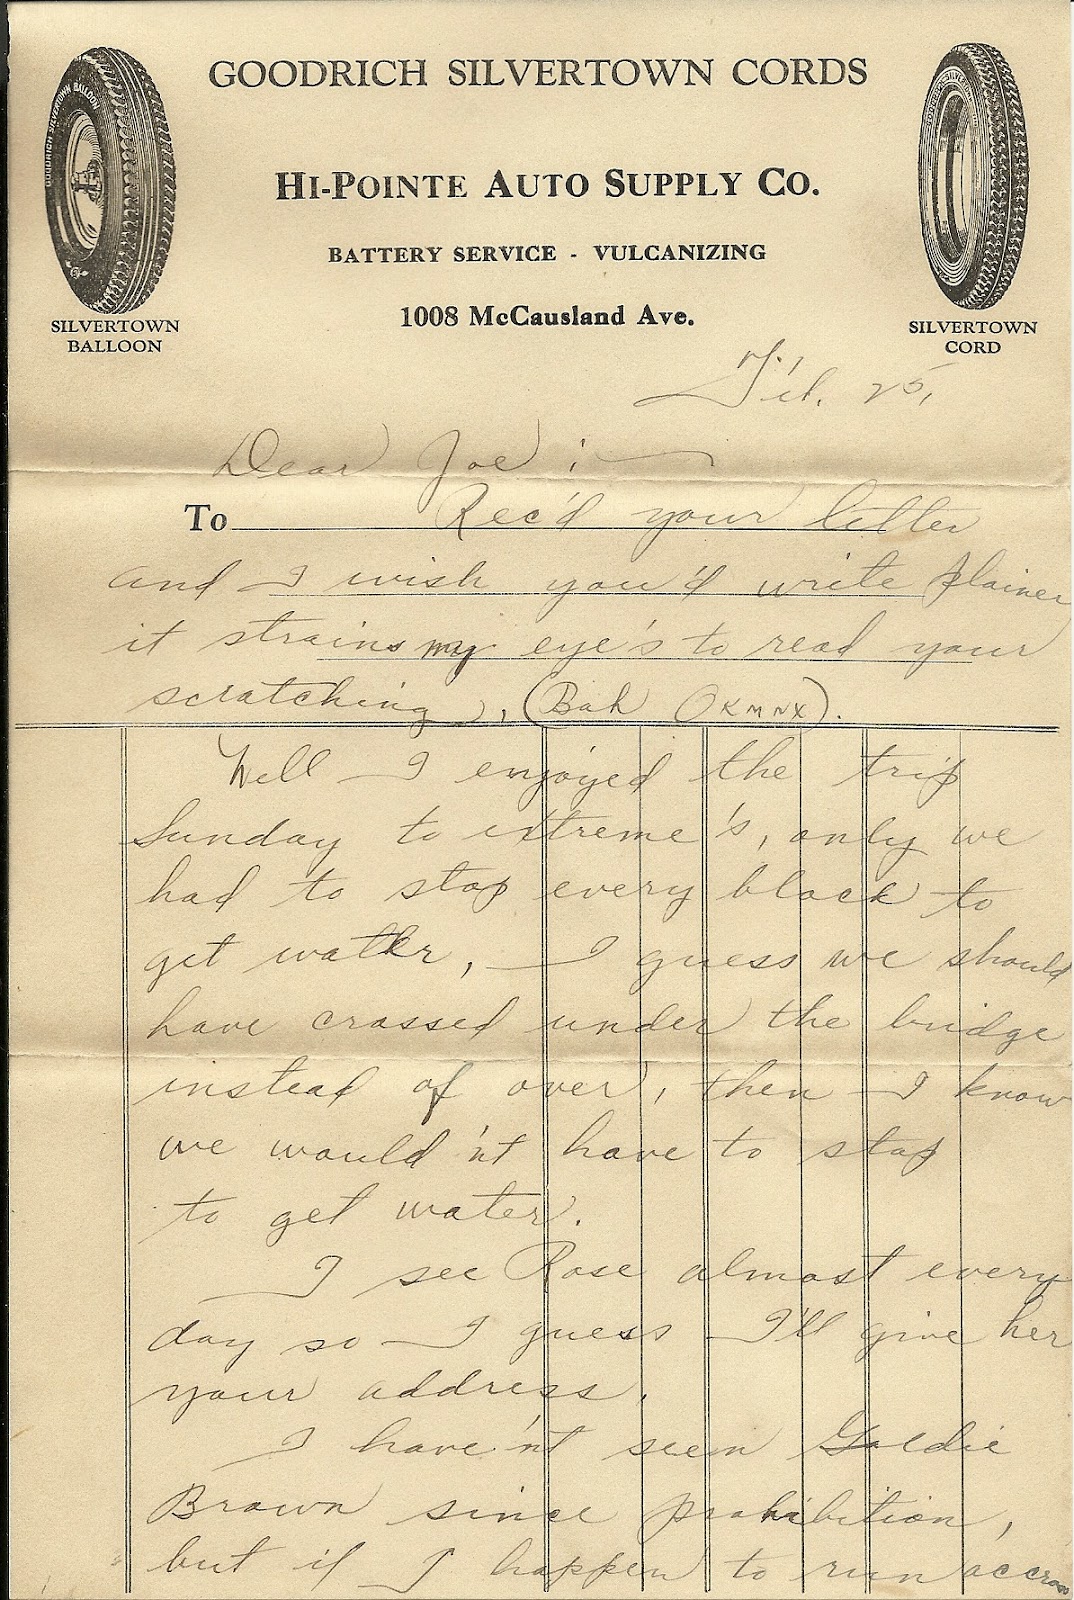 GOODRICH SILVERTOWN CORDS
HI-POINTE AUTO SUPPLY CO.
BATTERY SERVICE - VULCANIZING
1008 McCausland Ave.
GOODRICH SILVERTOWN BALLOON
SILVERTOWN
BALLOON
SILVERTOWN
CORD
Feb. 25,
Dear Joe :
To Rec'd your letter
and I wish you'd write plainer
it strains my eye's to read your
scratching, (Bah OKMNX).
Well I enjoyed the trip
Sunday to extreme's, only we
had to stop every block to
get water, I guess we should
have crossed under the bridge
instead of over, then I know
we would'nt have to stop
to get water.
I see Rose almost every
day so I guess I'll give her
your address.
I have'nt seen Goldie
Brown since prohibition,
but if I happen to run accross